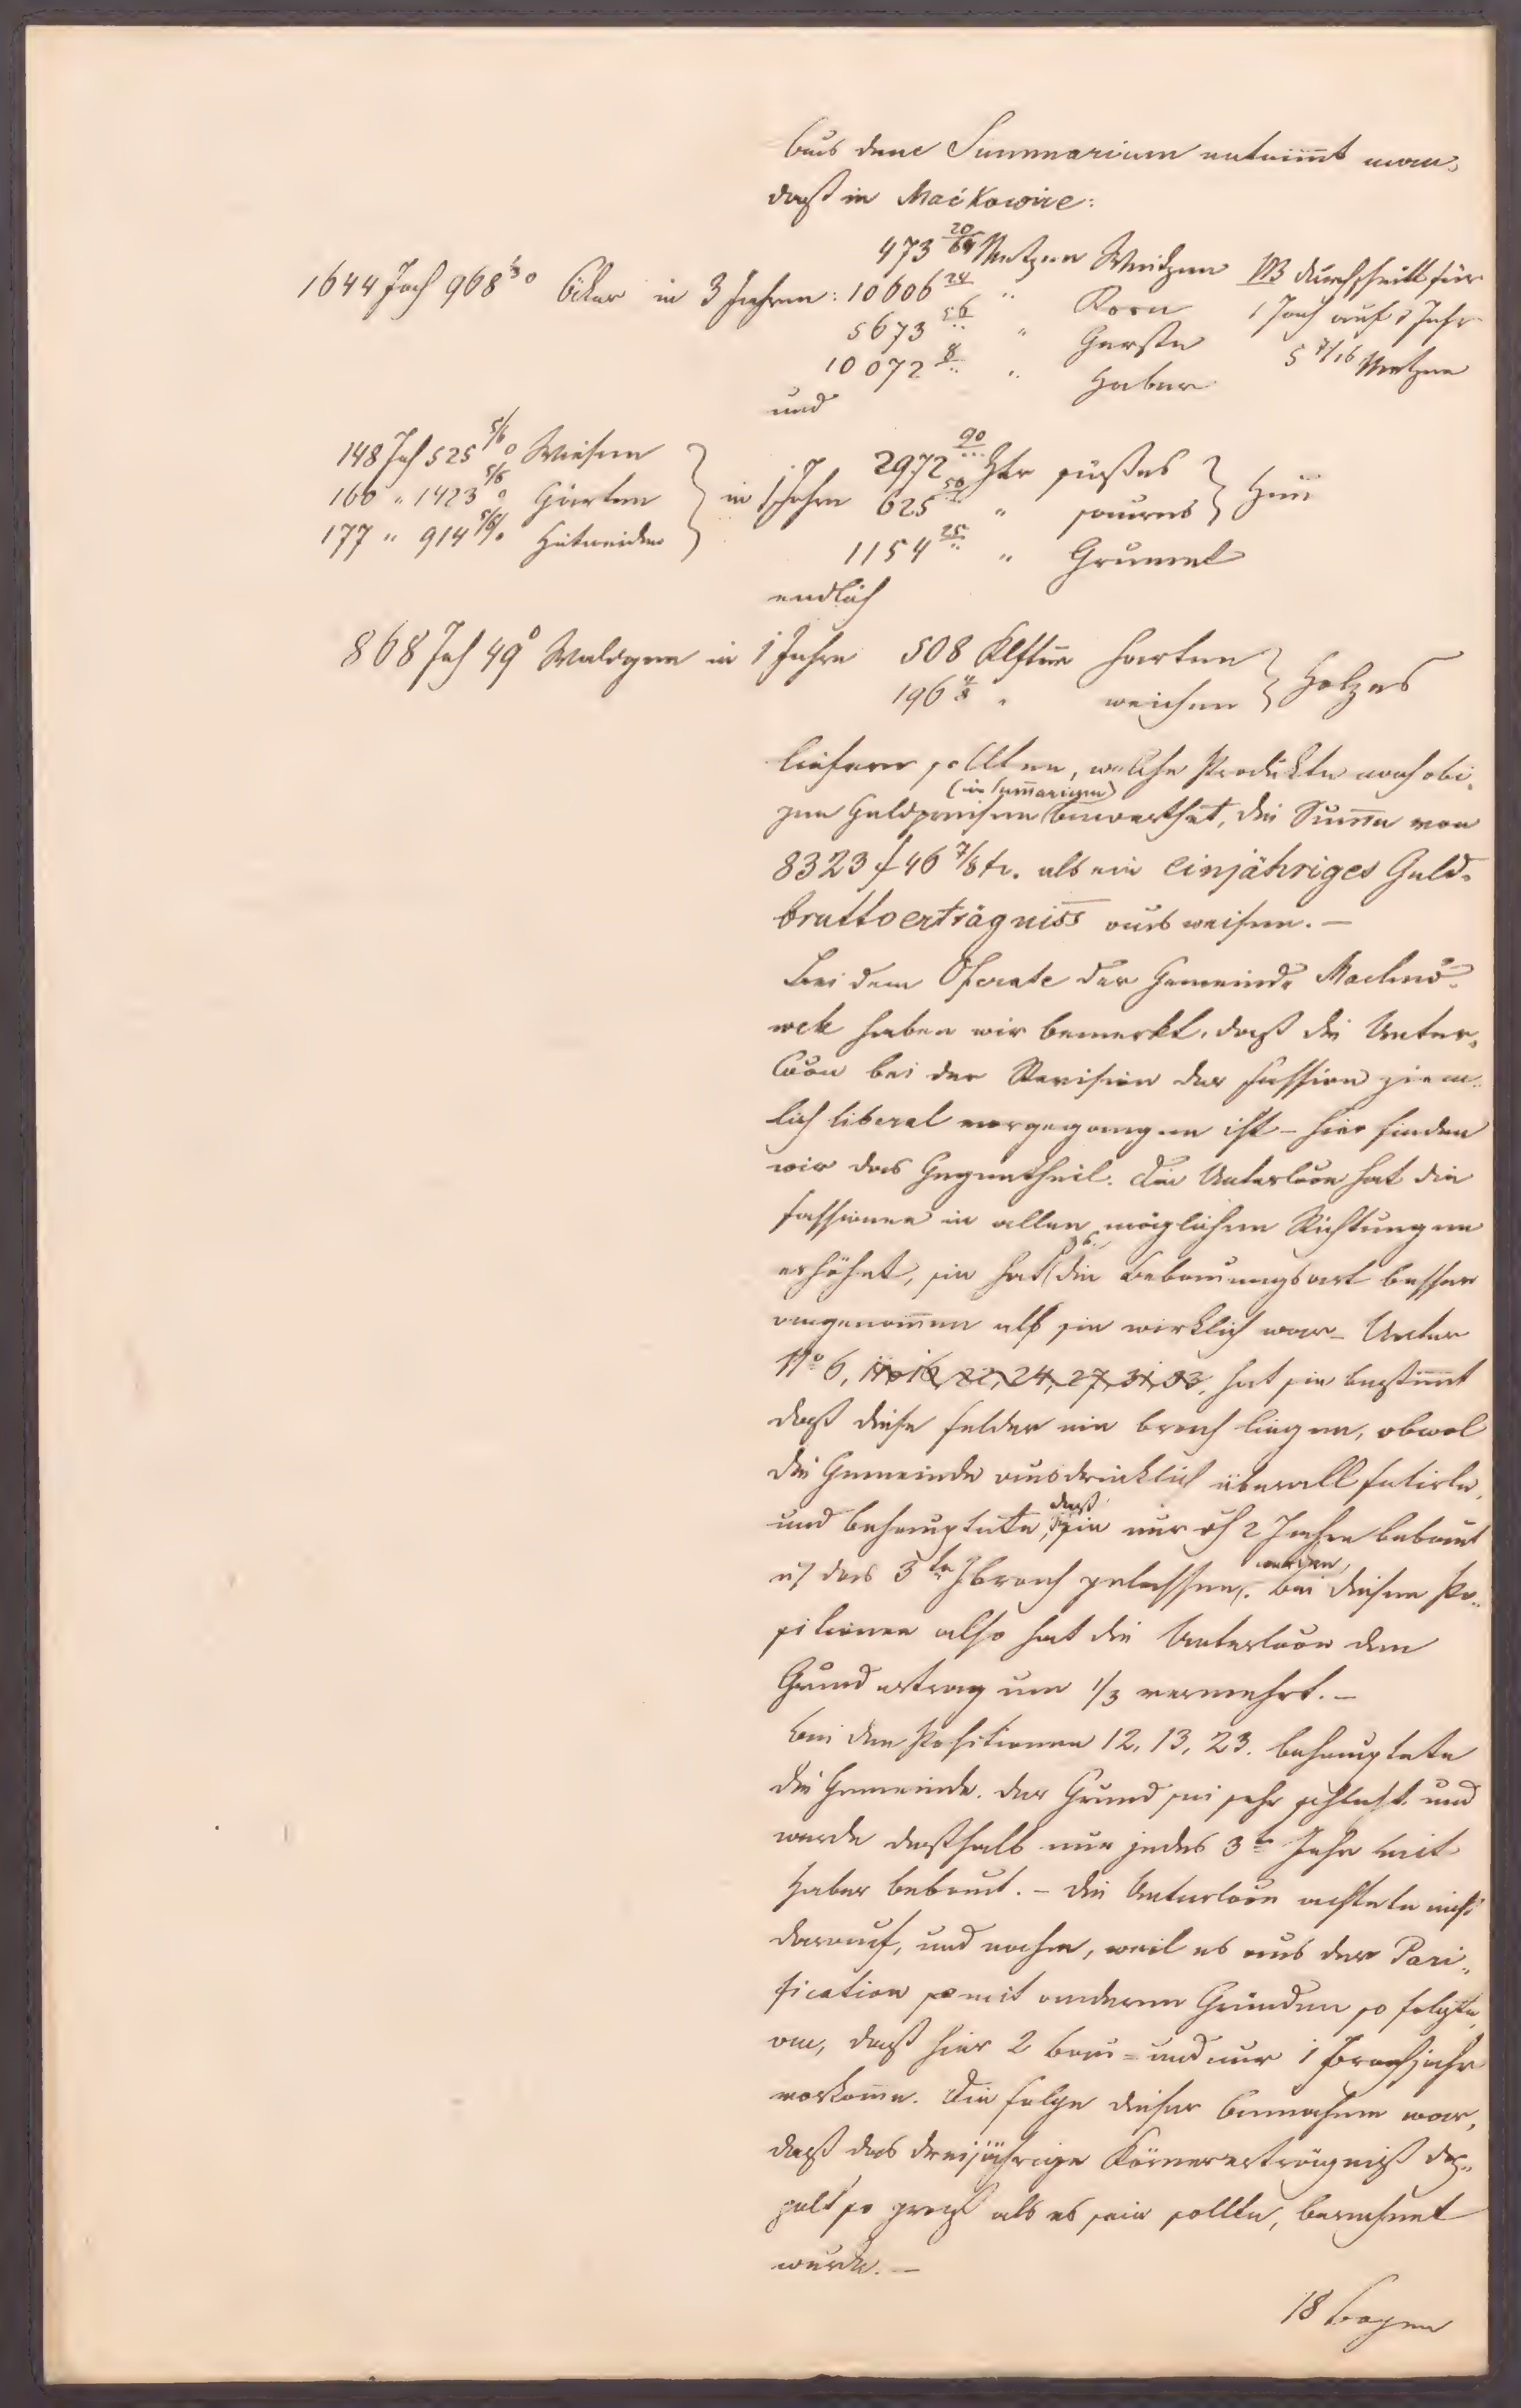 Aus dem Summarium entnim̅t man,
daß in Maćkowice:
473 20/64 Metzen Weitzen NB Durchschnitt für
1644 Joch 968 1/3 0 Äcker in 3 Jahren: 10606 24 " Korn 1 Joch auf 1 Jahr
5673 56 " Gerste 5 7/16 Metzen
10072 8 " Haber
und
148 Joch 525 5/6 0 Wiesen
160 " 1423 5/6 0 Gärten
177 " 914 5/6 0 Hutweiden
in 1 Jahre 2972 90 Ztr süßes
625 50 " saures Heu
1154 25 " Grummet
endlich
868 Joch 49 0 Waldgen in 1 Jahre 508 Klftern harten
196 4/8 " weichen Holzes
liefern sollten, welche Produkte nach obi„
(im Sum̅arium)
gen Geldpreisen bewerthet, die Sum̅e von
8323 f 46 7/8 kr. als ein einjähriges Geld„
bruttoerträgniss ausweisen. —
Bei dem Operate der Gemeinde Machnó„
wek haben wir bemerkt, daß die Unter„
coon bei der Revision der Fassion ziem„
lich liberal vorgegangen ist — hier finden
wir das Gegentheil. Die Untercoon hat die
Fassionen in allen möglichen Richtungen
erhöhet, sie hat die Bebauungsart besser
angenom̅en als sie wirklich war — Unter
No 6, hat sie bestim̅t
daß diese Felder nie brach liegen, obwol
die Gemeinde ausdrücklich überall fatirte,
und behauptete, daß sie nur 2 Jahre bebaut
das 3te J brach gelassen werden. Bei diesen Po„
sitionen also hat die Untercoon den
Grundertrag um 1/3 vermehrt. —
Bei den Positionen 12, 13, 23. behauptete
die Gemeinde. der Grund sei sehr schlecht und
werde deßhalb nur jedes 3te Jahr mit
Haber bebaut. — Die Untercoon achtete nicht
darauf, und nahm, weil es aus der Pari„
fication mit anderen Gründen so folgte,
an, daß hier 2 Bau = und nur 1 Brachjahr
vorkom̅e. Die Folge dieser Annahme war,
daß das dreijährige Körnererträgniß dop„
pelt so groß als es sein sollte, berechnet
wurde. —
18 Bogen